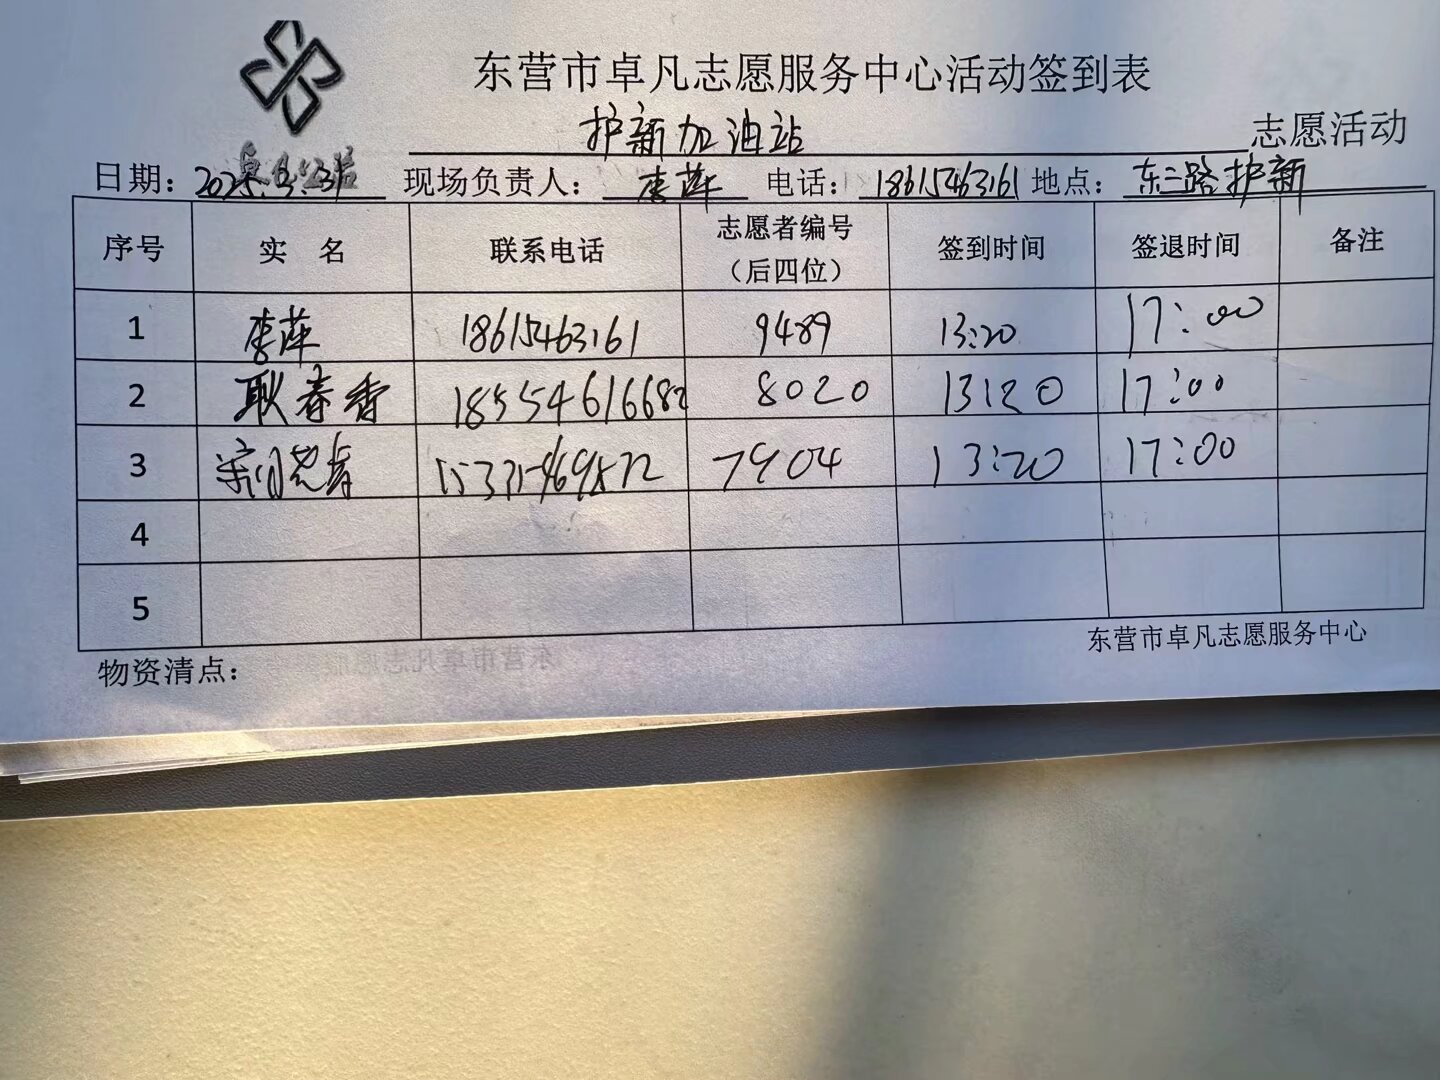 东营市卓凡志愿服务中心活动签到表
护新加油站 志愿活动
卓凡公益
日期：2025.3.31 现场负责人：李萍 电话：18615463161 地点：东三路护新
序号 实 名 联系电话 志愿者编号（后四位） 签到时间 签退时间 备注
1 李萍 18615463161 9489 13:20 17:00
2 耿春香 18554616682 8020 13:20 17:00
3 7904 13:20 17:00
4
5
东营市卓凡志愿服务中心
物资清点：